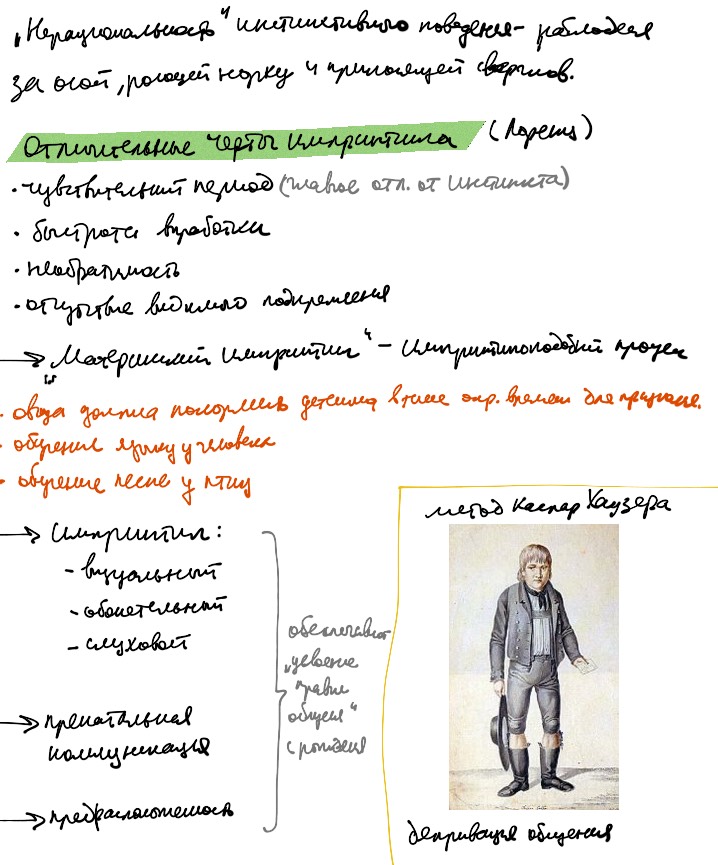 "Нерациональность" инстинктивного поведения - наблюдая
за осой, роющей норку и приносящей сверчков.
Отличительные черты импринтинга (Лоренц)
• чувствительный период (главное отл. от инстинкта)
• быстрота выработки
• необратимость
• отсутствие видимого подкрепления
→ "Материнский импринтинг" - импринтингоподобный процесс
• овца должна покормить детеныша в течение опр. времени для признания.
• обучение языку у человека
• обучение песне у птиц
→ Импринтинг:
- визуальный
- обонятельный
- слуховой
→ пренатальная
коммуникация
→ предрасположенность
обеспечивают
"усвоение
правил
общения"
с рождения
метод Каспар Хаузера
депривация общения